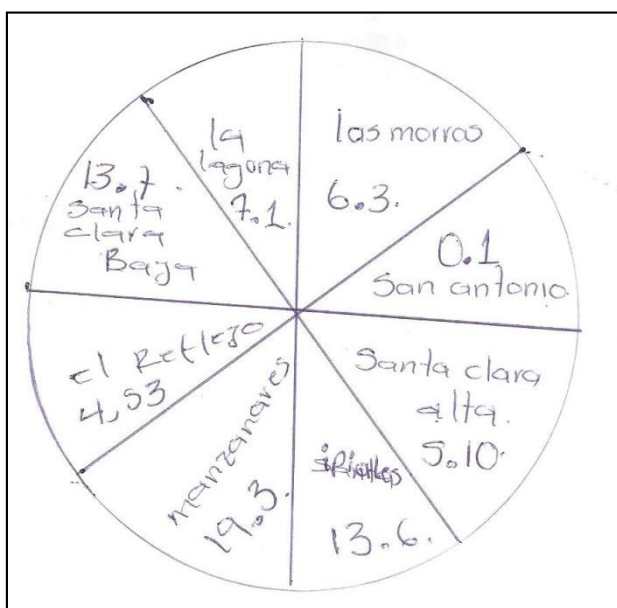 las morros
6.3.
0.1
San antonio
Santa clara
alta.
5.10.
13.6.
manzanares
19.3.
el Reflejo
4,53
13.7.
Santa
clara
Baja
la
laguna
7.1.